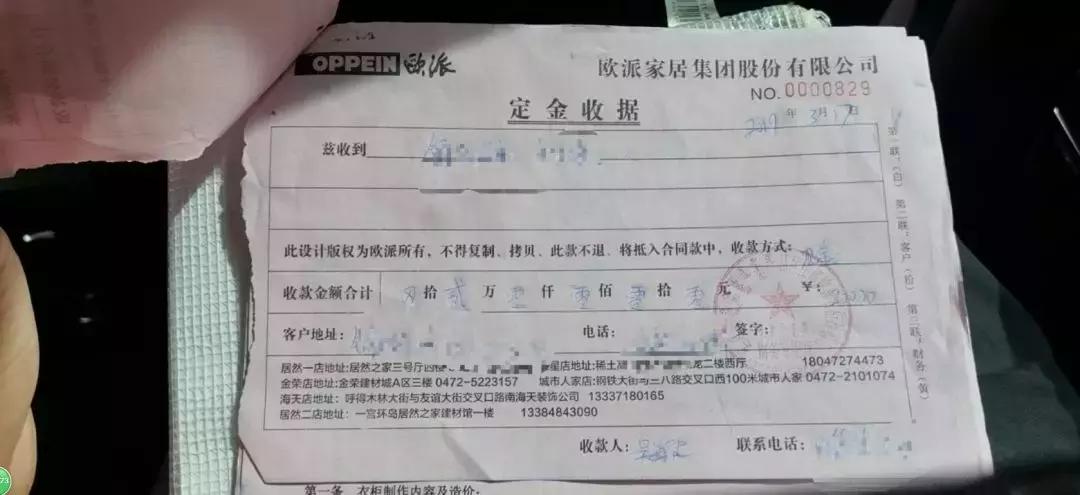 OPPEIN 欧派
欧派家居集团股份有限公司
NO.0000829
定金收据
2019年3月17日
兹收到
此设计版权为欧派所有，不得复制、拷贝、此款不退、将抵入合同款中，收款方式：现金
收款金额合计 拾贰万零仟零佰零拾零元 ￥：
客户地址： 电话： 签字：
居然一店地址:居然之家三号厅 星店地址:稀土 龙二楼西厅 18047274473
金荣店地址:金荣建材城A区三楼 0472-5223157 城市人家店:钢铁大街与三八路交叉口西100米城市人家 0472-2101074
海天店地址：呼得木林大街与友谊大街交叉口路南海天装饰公司 13337180165
居然二店地址：一宫环岛居然之家建材馆一楼 13384843090
收款人：吴 联系电话：
第一联：（白） 第二联：客户（粉） 第三联：财务（黄）
第一条 衣柜制作内容及造价:
73